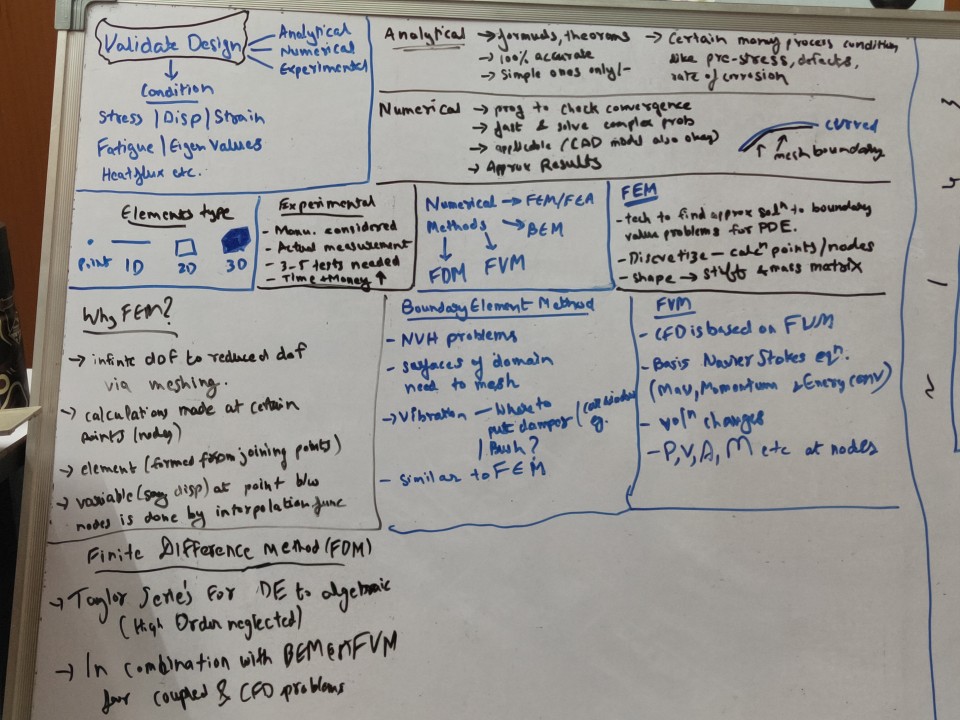 Validate Design
Analytical
Numerical
Experimental
Condition
Stress | Disp | Strain
Fatigue | Eigen Values
Heatflux etc.
Analytical → formuls, theorams
→ 100% accurate
→ Simple ones only/-
→ Certain many process condition
like pre-stress, defects,
rate of corrosion
Numerical → prog to check convergence
→ fast & solve complex prob
→ applicable (CAD model also okay)
→ Approx Results
curved
mesh boundary
Elements type
Point 1D 2D 3D
Experimental
- Manu. considered
- Actual measurement
- 3-5 tests needed
- Time + Money ↑
Numerical → FEM/FEA
Methods → BEM
FDM FVM
FEM
- tech to find approx solⁿ to boundary
value problems for PDE.
- Discretize - calcⁿ points/nodes
- shape → & mass matrix
Why FEM?
→ infinte dof to reduced dof
via meshing.
→ calculations made at certain
points (nodes)
→ element (formed from joining points)
→ variable (say disp) at point b/w
nodes is done by interpolation func
Boundary Element Method
- NVH problems
- surfaces of domain
need to mesh
→ Vibration - Where to
put dampor
eg.
/ Bush?
- similar to FEM
FVM
- CFD is based on FVM
- Basis Navier Stokes eqⁿ.
(Mav, Momentum & Energy conv)
- volⁿ changes
- P, V, A, M etc at nodes
Finite Difference method (FDM)
→ Taylor Series For DE to algebraic
(High Order neglected)
→ In combination with BEM or FVM
for coupled & CFD problems